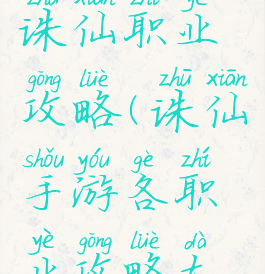 zhū xiān zhí yè
诛仙职业
gōng lüè zhū xiān
攻略(诛仙
shǒu yóu gè zhí
手游各职
yè gōng lüè dà
业攻略大